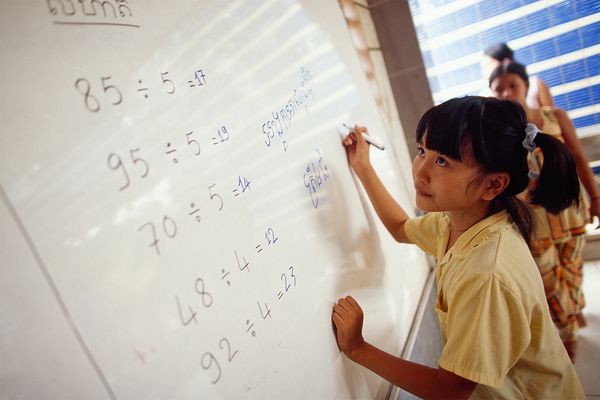 លំហាត់
85 ÷ 5 =17
95 ÷ 5 =19
70 ÷ 5 =14
48 ÷ 4 =12
92 ÷ 4 =23